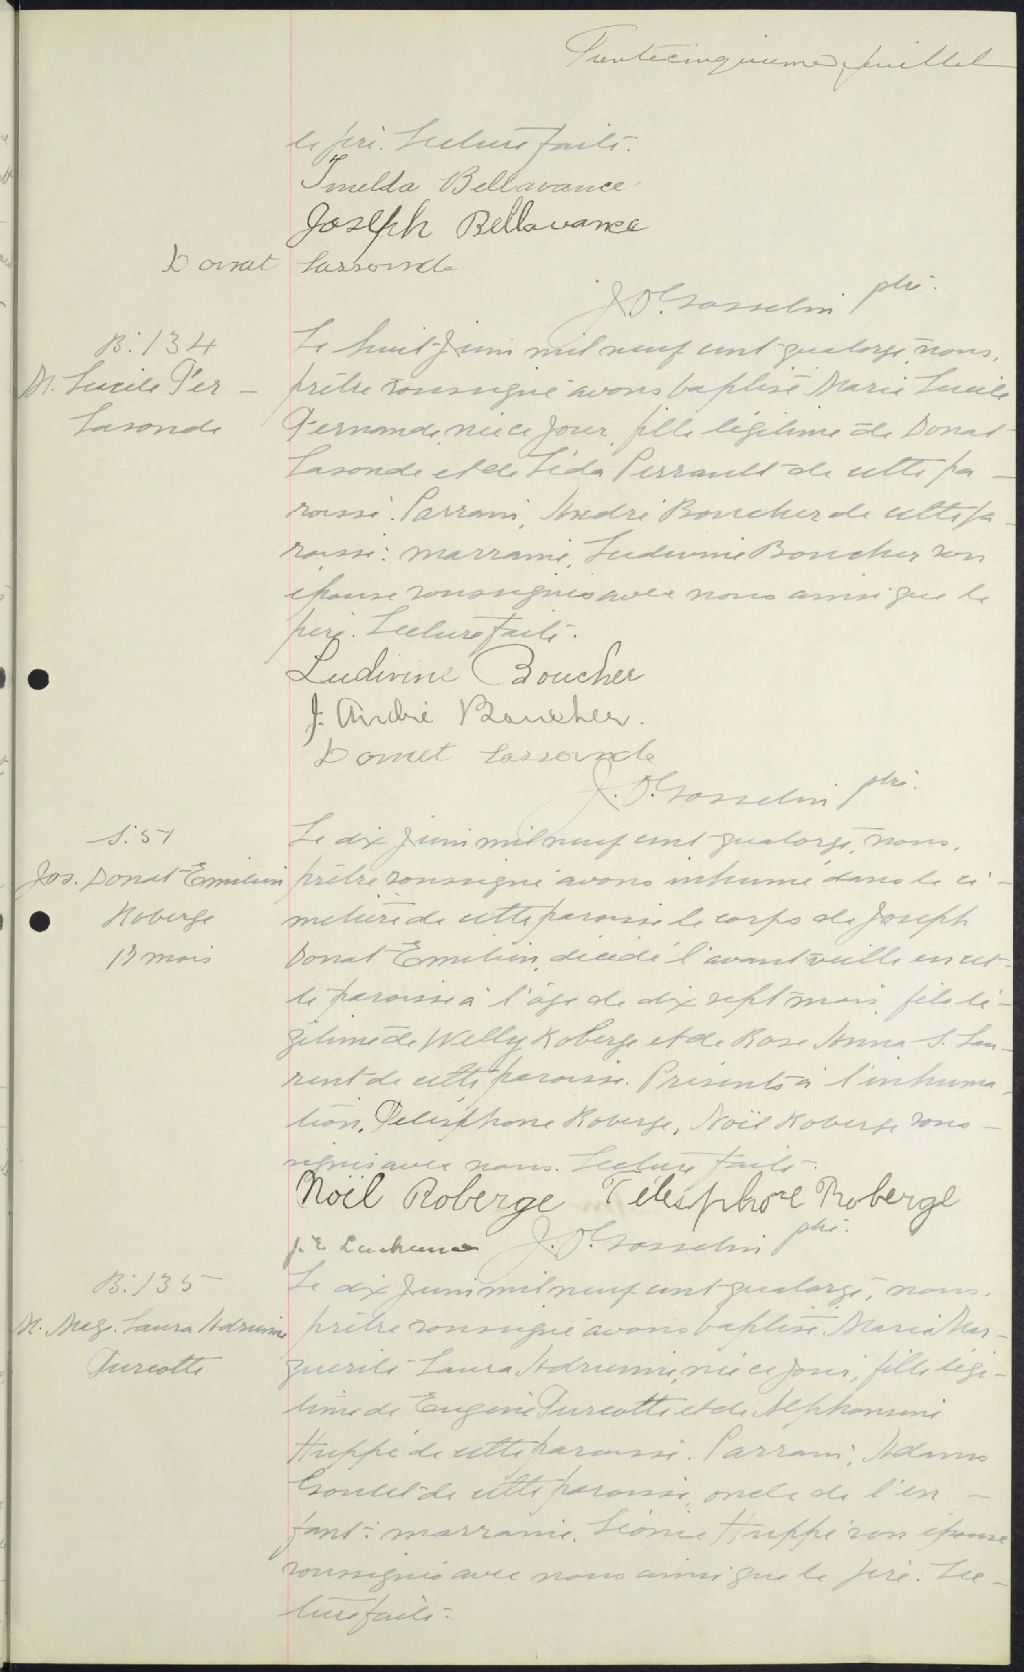 Trentecinquième feuillet
le père. Lecture faite.
Imelda Bellavance
Joseph Bellavance
Donat Lassonde
J. O. Gosselin ptre.
B. 134
M. Lucile Fer-
Lasonde
Le huit Juin mil neuf cent quatorze, nous,
prêtre soussigné avons baptisé Marie Lucile
Fernande, née ce jour, fille légitime de Donat
Lasonde et de Lida Perrault de cette pa-
roisse. Parrain, André Boucher de cette pa-
roisse: marraine, Ludivine Boucher son
épouse soussignés avec nous ainsi que le
père. Lecture faite.
Ludivine Boucher
J. André Boucher.
Donat Lassonde
J. O. Gosselin ptre.
S. 51
Jos. Donat Emilien
Roberge
17 mois
Le dix Juin mil neuf cent quatorze, nous,
prêtre soussigné avons inhumé dans le ci-
metière de cette paroisse le corps de Joseph
Donat Emilien, décédé l'avant veille en cet-
te paroisse à l'âge de dix sept mois, fils lé-
gitime de Welly Roberge et de Rose Anna S. Lau-
rent de cette paroisse. Présents à l'inhuma-
tion, Télesphore Roberge, Noël Roberge sous-
signés avec nous. Lecture faite.
Noël Roberge Télesphore Roberge
J. O. Gosselin ptre.
B. 135
M. Marg. Laura Adrienne
Turcotte
Le dix Juin mil neuf cent quatorze, nous,
prêtre soussigné avons baptisé Marie Mar-
guerite Laura Adrienne, née ce jour, fille légi-
time de Eugène Turcotte et de Alphonsine
Huppé de cette paroisse. Parrain, Adams
Goulet de cette paroisse, oncle de l'en-
fant: marraine, Léonie Huppé son épouse
soussignés avec nous ainsi que le père. Lec-
ture faite.